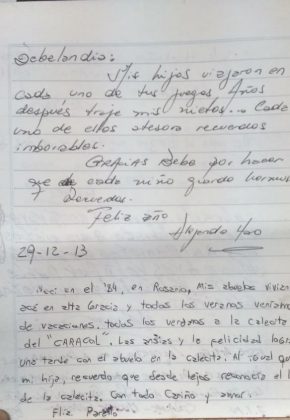 Bebelandia:
Mis hijos viajaron en
cada uno de tus juegos Años
después traje mis nietos... Cada
uno de ellos atesora recuerdos
imborrables.
GRACIAS Bebe por hacer
que de cada niño guarde
recuerdos.
Feliz año
Alejandro
29-12-13
Nací en el '84, en Rosario, Mis abuelos vivian
acá en alta Gracia y todos los veranos
de vacaciones. todos los veranos a la calecita
del "CARACOL". Las ansias y la felicidad
una tarde con el abuelo en la calecita. Al igual que
mi hija, recuerdo que desde lejos
de la calecita. Con todo Cariño y amor.
Flia.